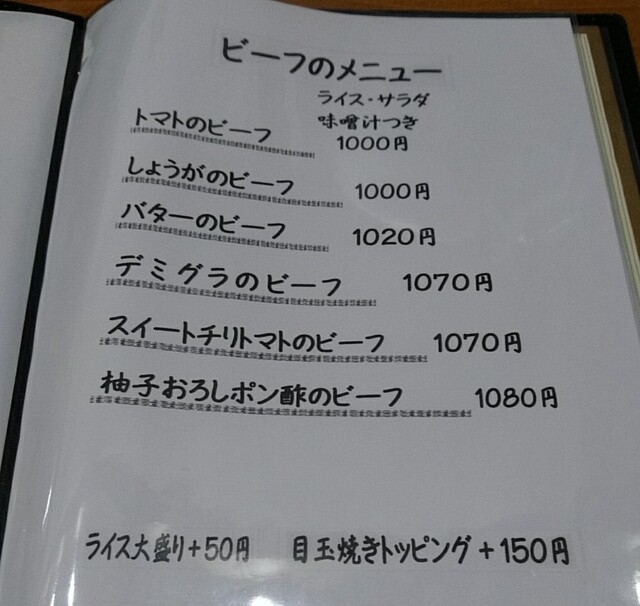 ビーフのメニュー
ライス・サラダ
味噌汁つき
トマトのビーフ 1000円
しょうがのビーフ 1000円
バターのビーフ 1020円
デミグラのビーフ 1070円
スイートチリトマトのビーフ 1070円
柚子おろしポン酢のビーフ 1080円
ライス大盛り+50円 目玉焼きトッピング+150円